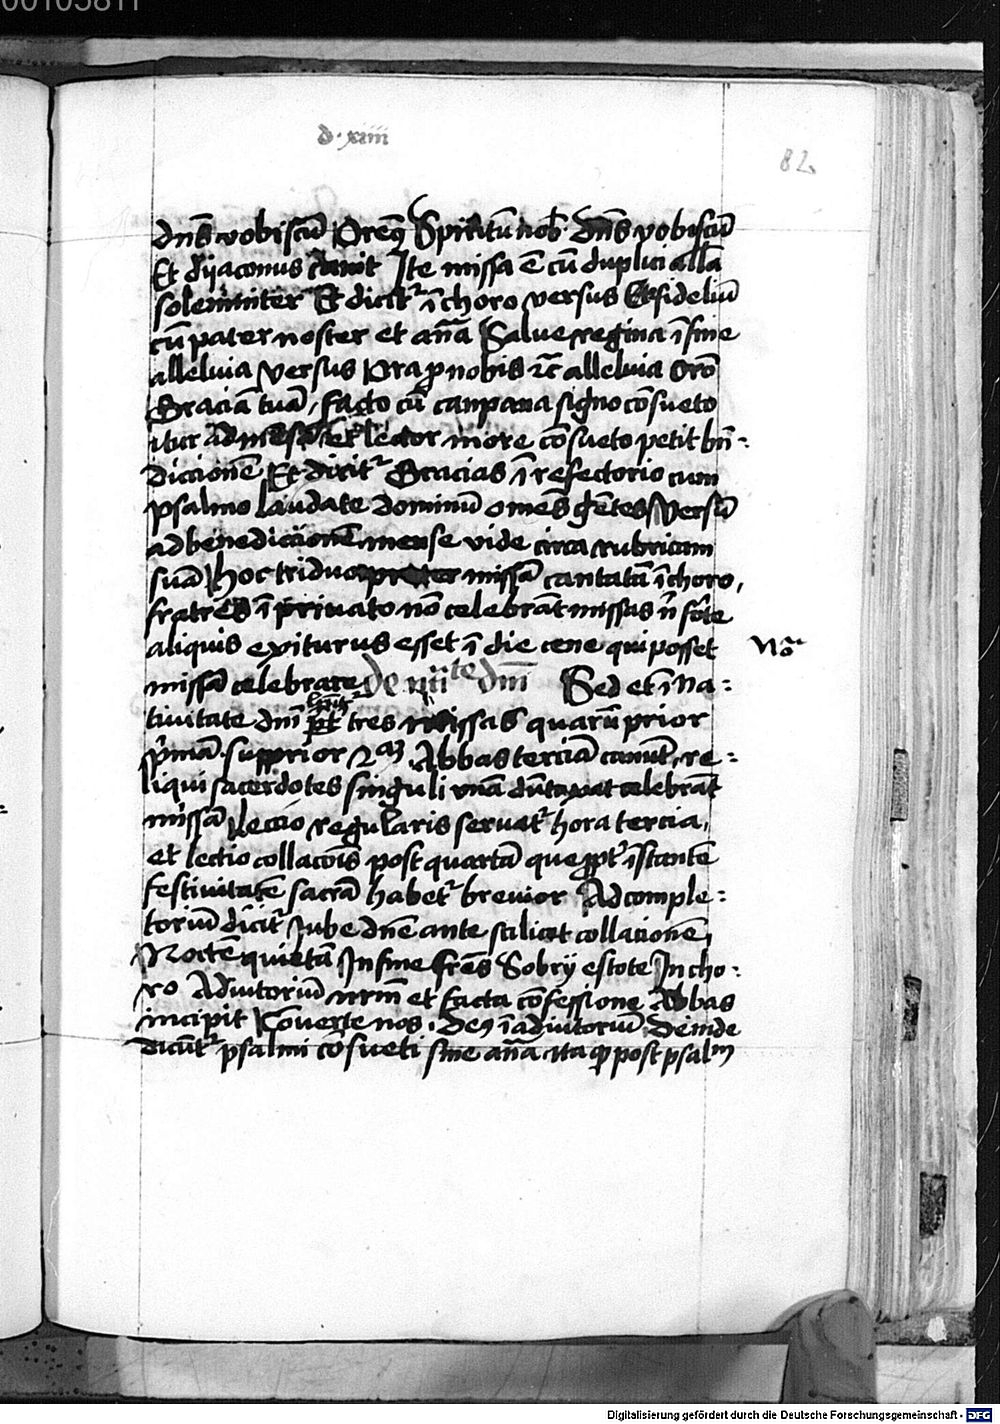 00105811
d. xiiii
82
dn̄s vobiscū Orem9 Spiritū nob̄. Dn̄s vobiscū
Et dyaconus canit Ite missa ē cū duplici all̄a
solemniter Et dicit᷑ ī choro versus Et fideliū
cū pater noster et an̄a Salue regina ī fine
alleluia versus Ora ꝓ nobis ⁊c̄ alleluia Orō
Graciā tuā, facto cū canpana signo cōsueto
itur ad mēsā et lector more cōsueto petit bn̄-
diccionē Et dicit᷑ Gracias ī refectorio cum
psalmo laudate dominū omēs gētes Versū
ad benediccionē mense vide circa rubricam
suā Hoc triduo preter missā cantatā ī choro,
fratres ī priuato nō celebrāt missas n̄ forte
aliquis exiturus esset ī die cene qui posset
Noᵃ
missā celebrare de nītᵗᵉ dn̄i Sed et ī na-
tiuitate dn̄i tres missas quarū prior
p̄mā. supprior 2ᵃᵐ. Abbas terciā canūt, re-
liqui sacerdotes singuli vnā dūtaxat celebrāt
missā Leccio regularis seruat᷑ hora tercia,
et lectio collacōis post quartā que ꝓpt᷑ īstantē
festiuitatē sacrā habet᷑ breuior Ad comple-
toriū dicit᷑ Jube dn̄e ante scilicet collacionē,
Noctē quietā In fine fr̄es Sobrij estote In cho-
ro Adiutoriū nr̄m et facta cōfessione Abbas
incipit Cōuerte nos. De9 ī adiutoriū. Deinde
dicūt᷑ psalmi cōsueti sine an̄a ita ꝙ post psalᵐ
Digitalisierung gefördert durch die Deutsche Forschungsgemeinschaft - DFG